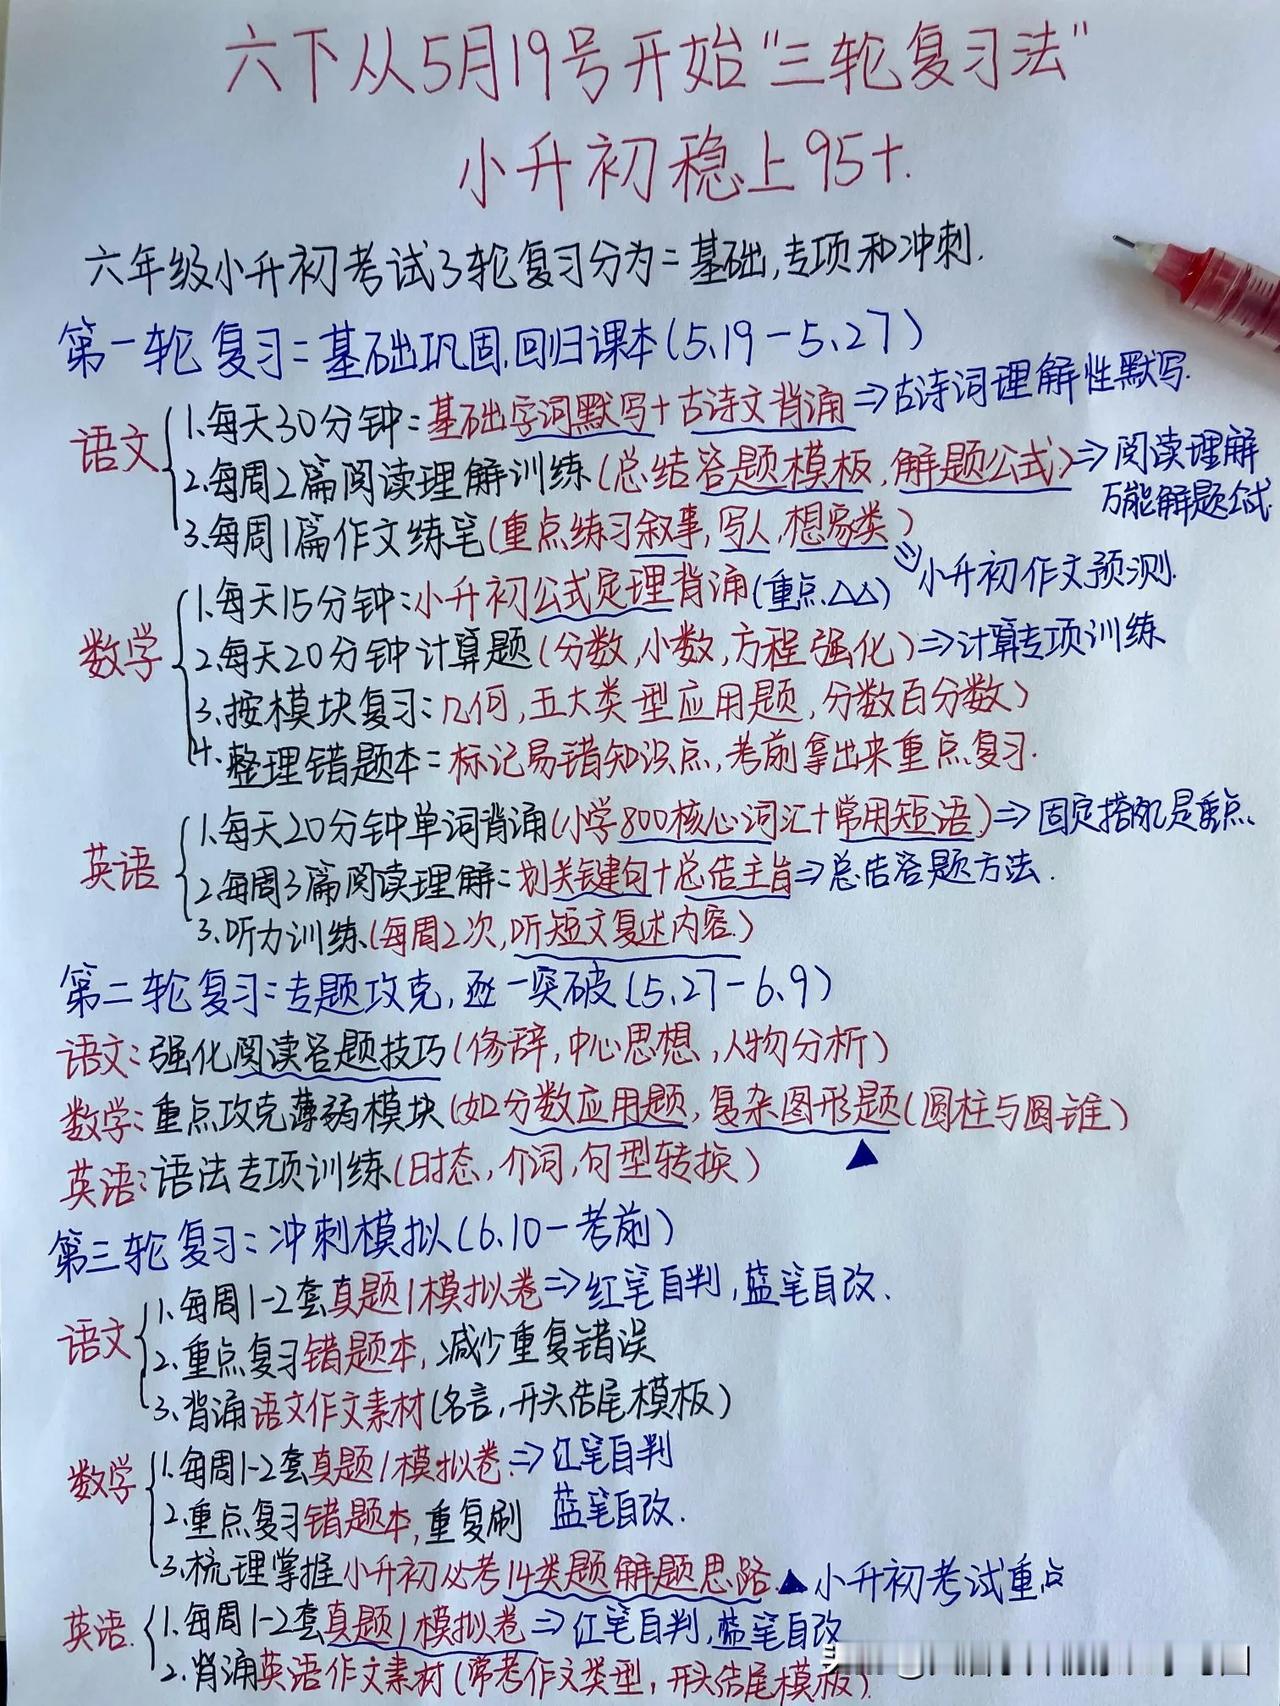 六下从5月19号开始"三轮复习法"
小升初稳上95+.
六年级小升初考试3轮复习分为=基础,专项和冲刺.
第一轮复习=基础巩固,回归课本(5.19-5.27)
语文
1.每天30分钟=基础字词默写+古诗文背诵⇒古诗词理解性默写.
2.每周2篇阅读理解训练(总结答题模板,解题公式)⇒阅读理解
万能解题公式.
3.每周1篇作文练笔(重点练习叙事,写人,想象类)
⇒小升初作文预测.
数学
1.每天15分钟:小升初公式定理背诵(重点△△)
2.每天20分钟计算题(分数,小数,方程强化)⇒计算专项训练
3.按模块复习:几何,五大类型应用题,分数百分数)
4.整理错题本=标记易错知识点,考前拿出来重点复习.
英语
1.每天20分钟单词背诵(小学800核心词汇+常用短语)⇒固定搭配是重点
2.每周3篇阅读理解=划关键句+总结主旨⇒总结答题方法.
3.听力训练(每周2次,听短文复述内容.)
第二轮复习:专题攻克,逐一突破(5.27-6.9)
语文:强化阅读答题技巧(修辞,中心思想,人物分析)
数学:重点攻克薄弱模块(如分数应用题,复杂图形题(圆柱与圆锥)
▲
英语:语法专项训练(时态,介词,句型转换)
第三轮复习:冲刺模拟(6.10-考前)
语文
1.每周1-2套真题/模拟卷⇒红笔自判,蓝笔自改.
2.重点复习错题本,减少重复错误
3.背诵语文作文素材(名言,开头结尾模板)
数学
1.每周1-2套真题/模拟卷.⇒红笔自判
蓝笔自改.
2.重点复习错题本,重复刷
3.梳理掌握小升初必考14类题解题思路.▲小升初考试重点
英语.
1.每周1-2套真题/模拟卷⇒红笔自判,蓝笔自改
2.背诵英语作文素材(常考作文类型,开头结尾模板).